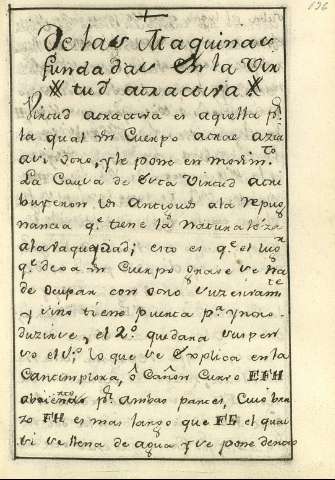 136
De las Maquinas
fundadas en la Vir
tud atractiva
Virtud atractiva es aquella pr.
la qual un Cuerpo atrae azia
asi otro, y le pone en movim.to
La Causa de esta Virtud atri
buyeron los Antiguos a la repug
nancia q.e tiene la naturaleza
ala vaquedad; esto es q.e el lug.r
q.e dexa un Cuerpo grave se ha
de ocupar con otro
y sino tiene puerta p.a
ducirse, el 2.o quedara suspen
so el 1.o lo que se explica en la
Cantimplora, ô Cañon Curvo EFH
abierto pr. ambas partes, Cuio bra
zo FH es mas largo que FE el qual
si se llena de agua y se pone dentro